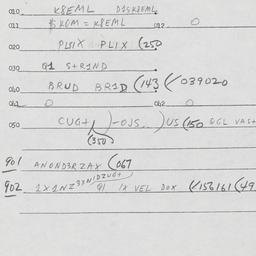 010 K8EML D1SK8EML
011 $KOM = K8EML 012 0
020 PL8IX PLIX (250
030 G1 S+R1ND
040 BRUD BR1D (143 (/039020
041 0 042 0
050 CUG+ )-OJS..)US (150 DCL VAS+
(350)
901 ANOND3RZAX (067
902 1X1NZ3XN1DZUG+ G1 1X VEL DOX (/156161 (49